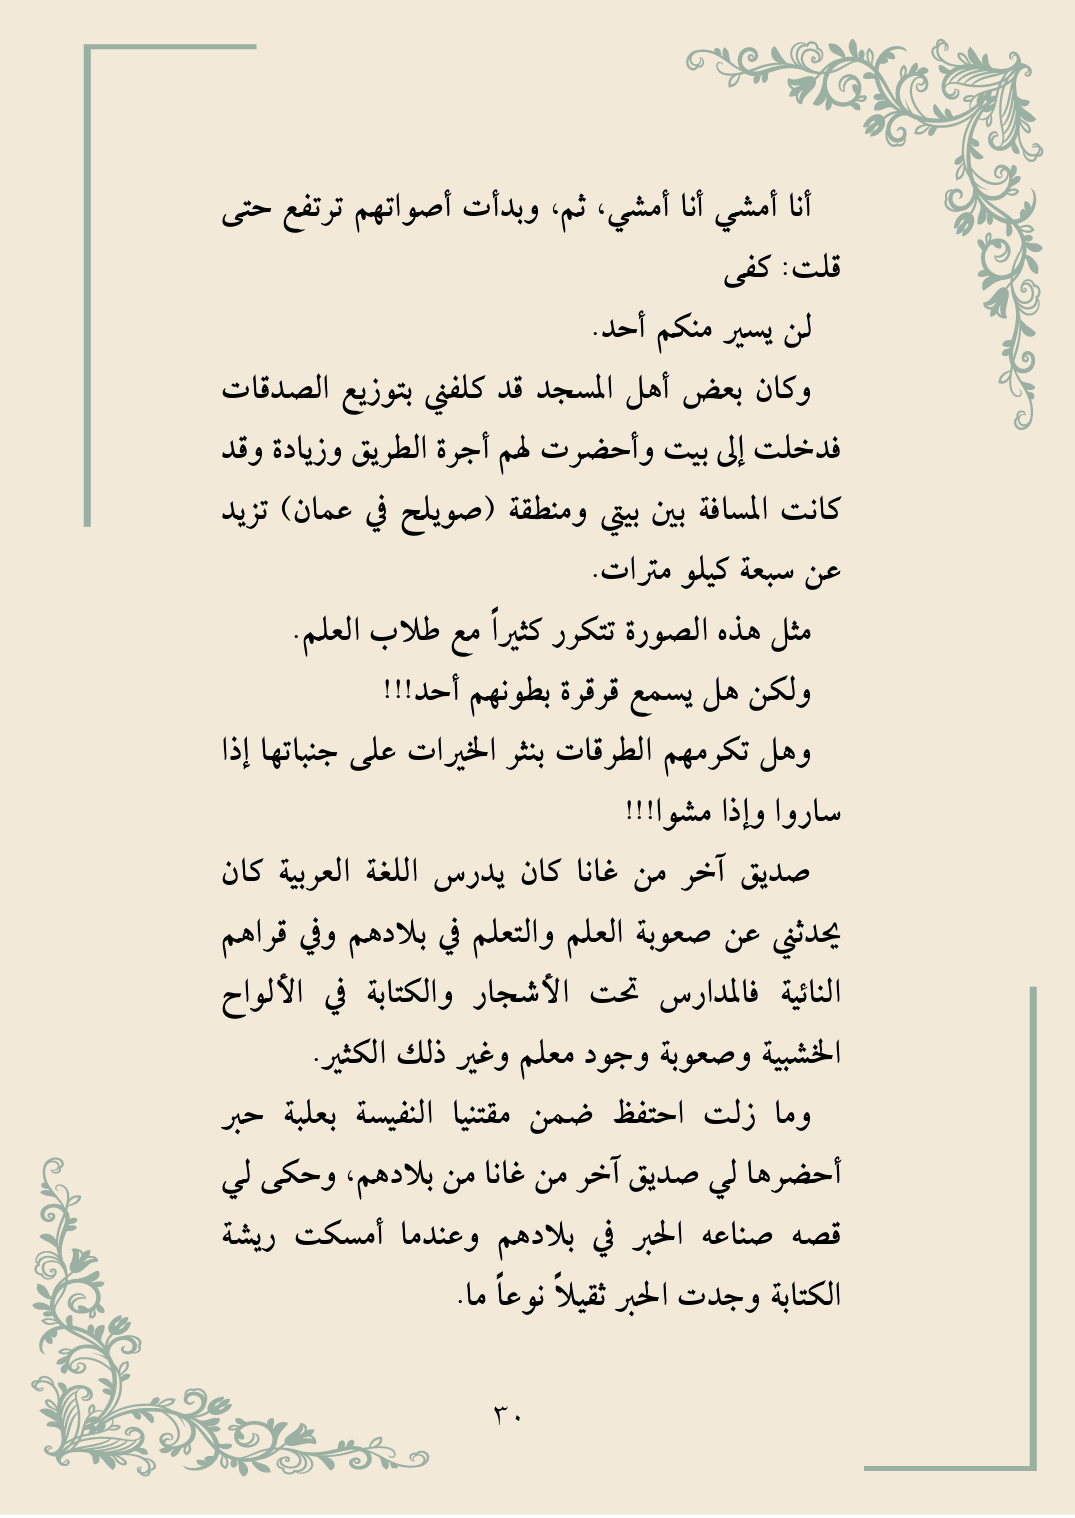 أنا أمشي أنا أمشي، ثم، وبدأت أصواتهم ترتفع حتى
قلت: كفى
لن يسير منكم أحد.
وكان بعض أهل المسجد قد كلفني بتوزيع الصدقات
فدخلت إلى بيت وأحضرت لهم أجرة الطريق وزيادة وقد
كانت المسافة بين بيتي ومنطقة (صويلح في عمان) تزيد
عن سبعة كيلو مترات.
مثل هذه الصورة تتكرر كثيراً مع طلاب العلم.
ولكن هل يسمع قرقرة بطونهم أحد!!!
وهل تكرمهم الطرقات بنثر الخيرات على جنباتها إذا
ساروا وإذا مشوا!!!
صديق آخر من غانا كان يدرس اللغة العربية كان
يحدثني عن صعوبة العلم والتعلم في بلادهم وفي قراهم
النائية فالمدارس تحت الأشجار والكتابة في الألواح
الخشبية وصعوبة وجود معلم وغير ذلك الكثير.
وما زلت احتفظ ضمن مقتنيا النفيسة بعلبة حبر
أحضرها لي صديق آخر من غانا من بلادهم، وحكى لي
قصه صناعه الحبر في بلادهم وعندما أمسكت ريشة
الكتابة وجدت الحبر ثقيلاً نوعاً ما.
٣٠